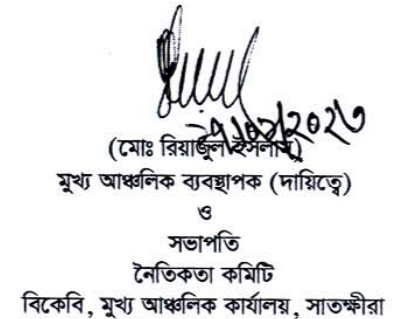 (মোঃ রিয়াজুল ইসলাম)
মুখ্য আঞ্চলিক ব্যবস্থাপক (দায়িত্বে)
ও
সভাপতি
নৈতিকতা কমিটি
বিকেবি, মুখ্য আঞ্চলিক কার্যালয়, সাতক্ষীরা